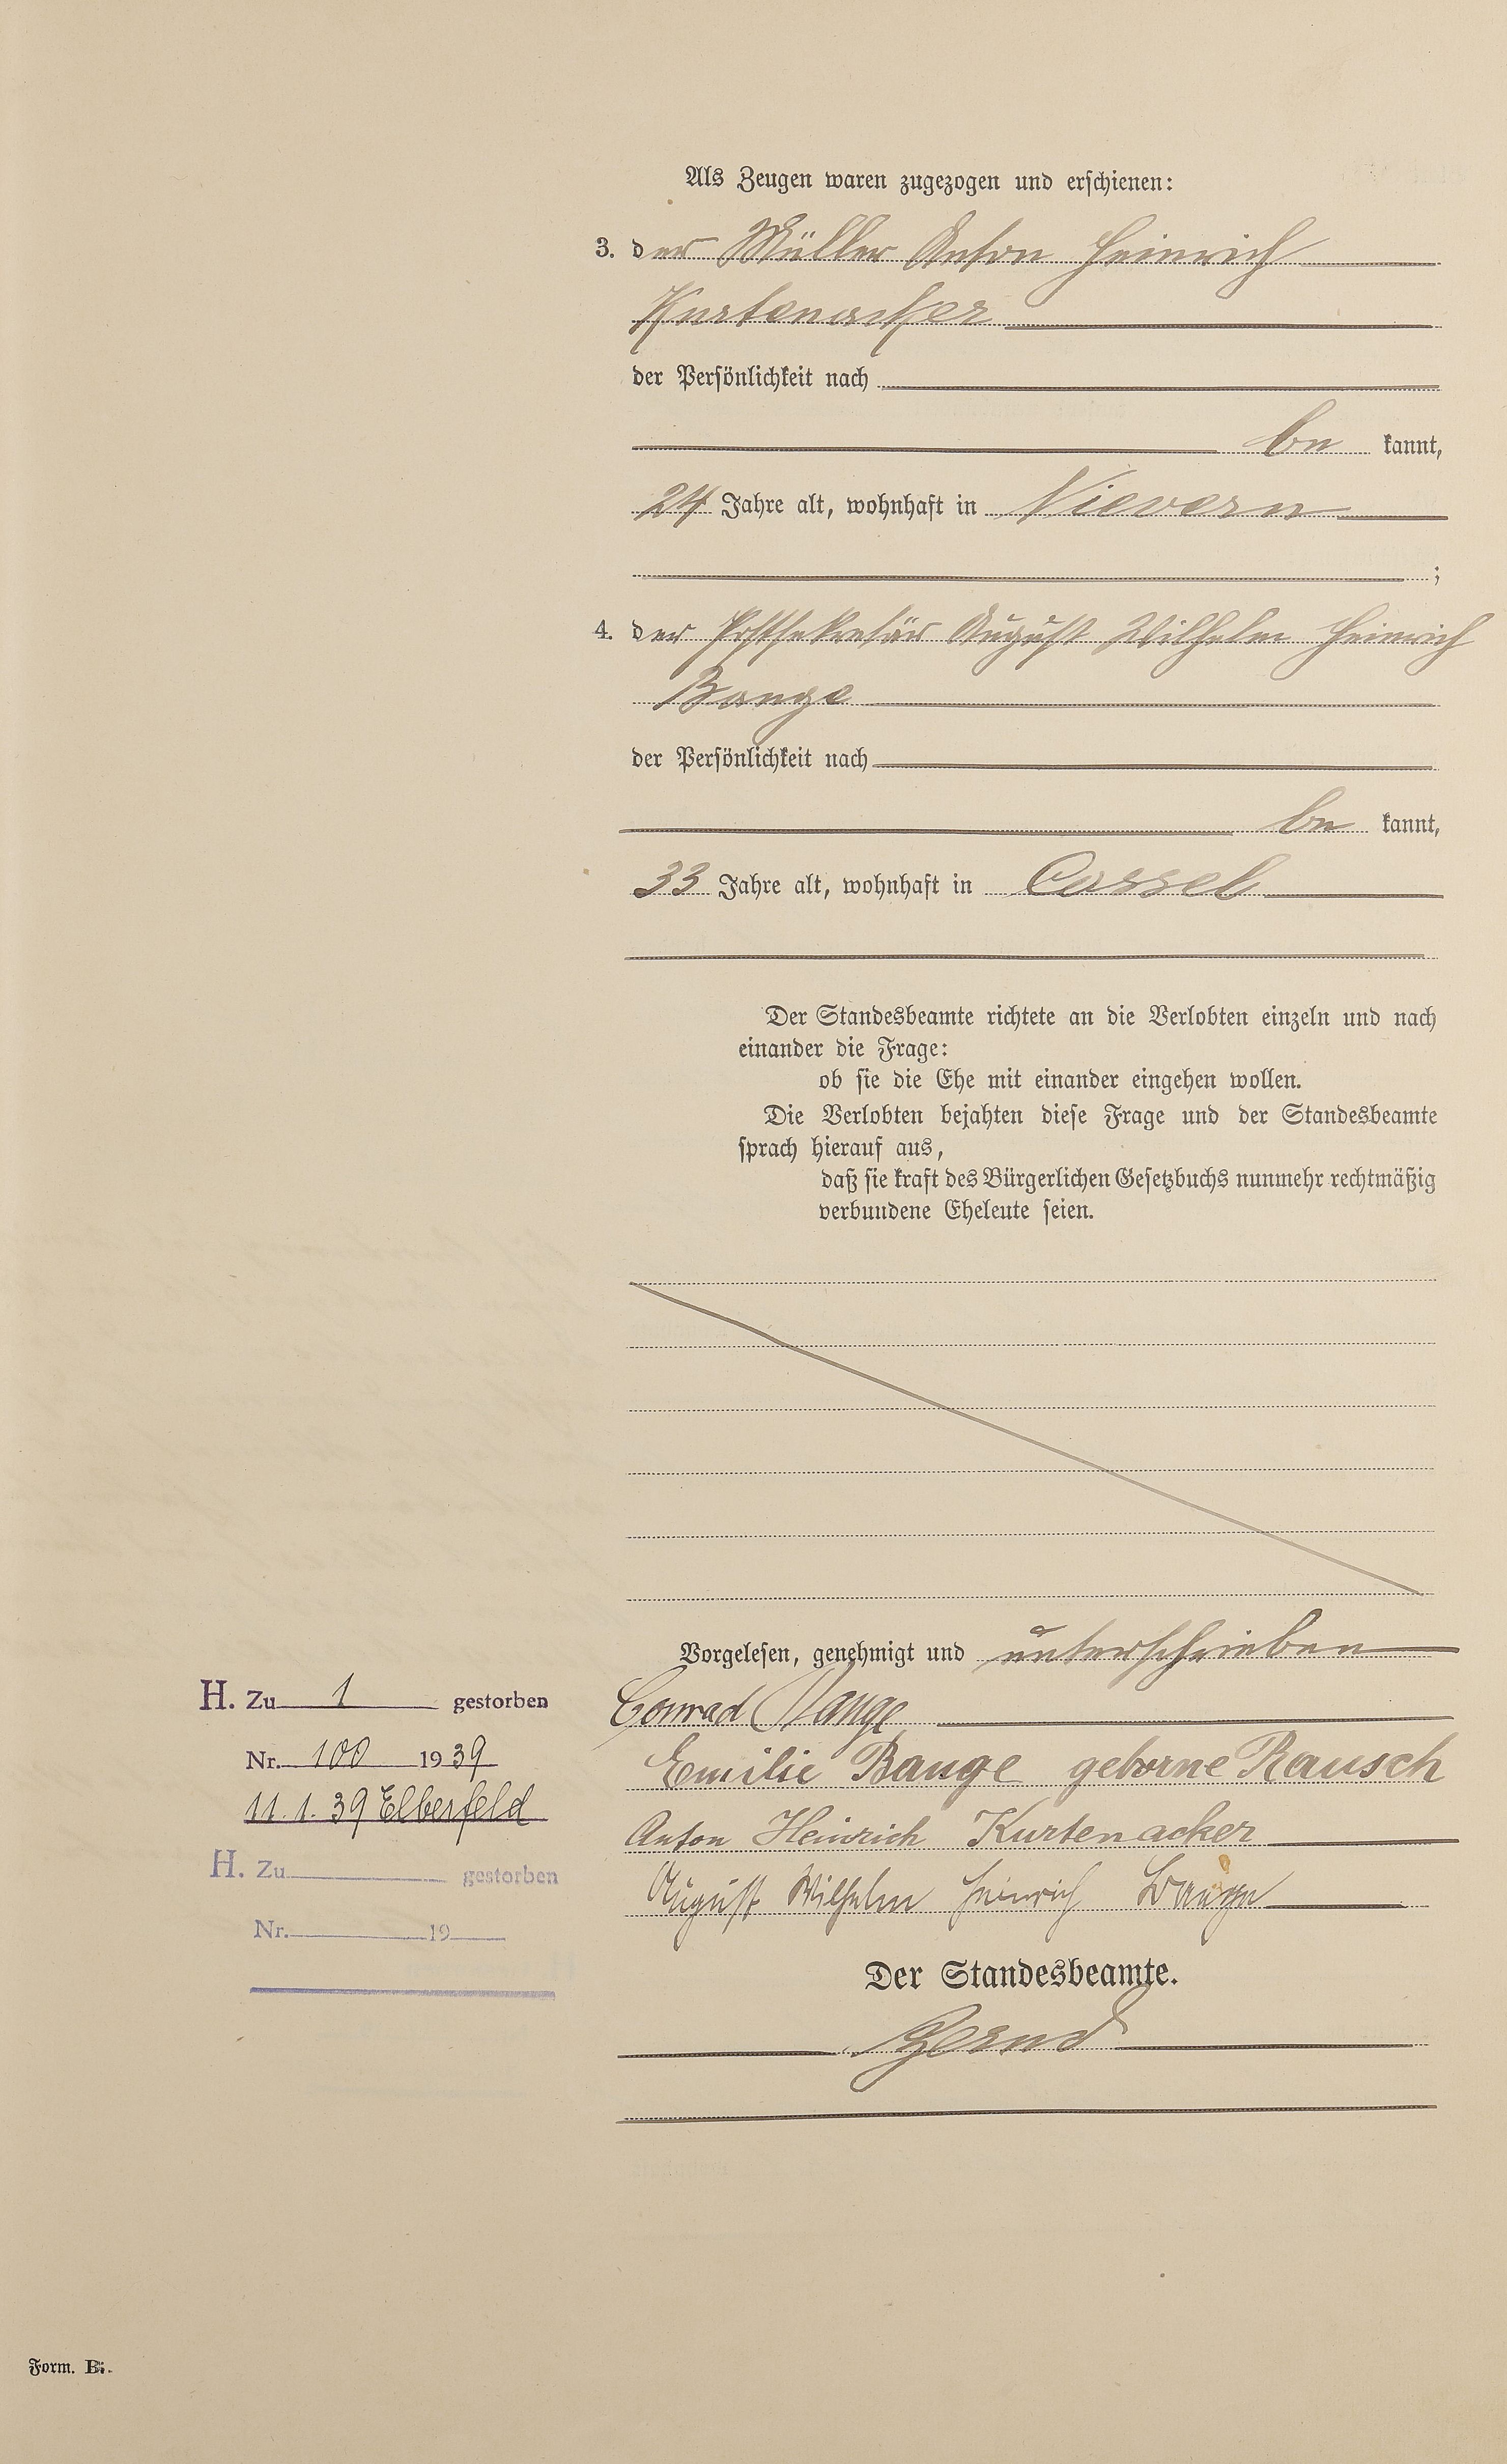 Als Zeugen waren zugezogen und erschienen:
3. der Müller Anton Heinrich
Kurtenacker
der Persönlichkeit nach
be kannt,
24 Jahre alt, wohnhaft in Nievern
;
4. der Postsekretär August Wilhelm Heinrich
Bange
der Persönlichkeit nach
be kannt,
33 Jahre alt, wohnhaft in Cassel
Der Standesbeamte richtete an die Verlobten einzeln und nach
einander die Frage:
ob sie die Ehe mit einander eingehen wollen.
Die Verlobten bejahten diese Frage und der Standesbeamte
sprach hierauf aus,
daß sie kraft des Bürgerlichen Gesetzbuchs nunmehr rechtmäßig
verbundene Eheleute seien.
Vorgelesen, genehmigt und unterschrieben
Conrad Bange
Emilie Bange geborne Rausch
Anton Heinrich Kurtenacker
August Wilhelm Heinrich Bange
Der Standesbeamte.
H. Zu 1 gestorben
Nr. 100 1939
11.1.39 Elberfeld
H. Zu gestorben
Nr. 19
Form. B.